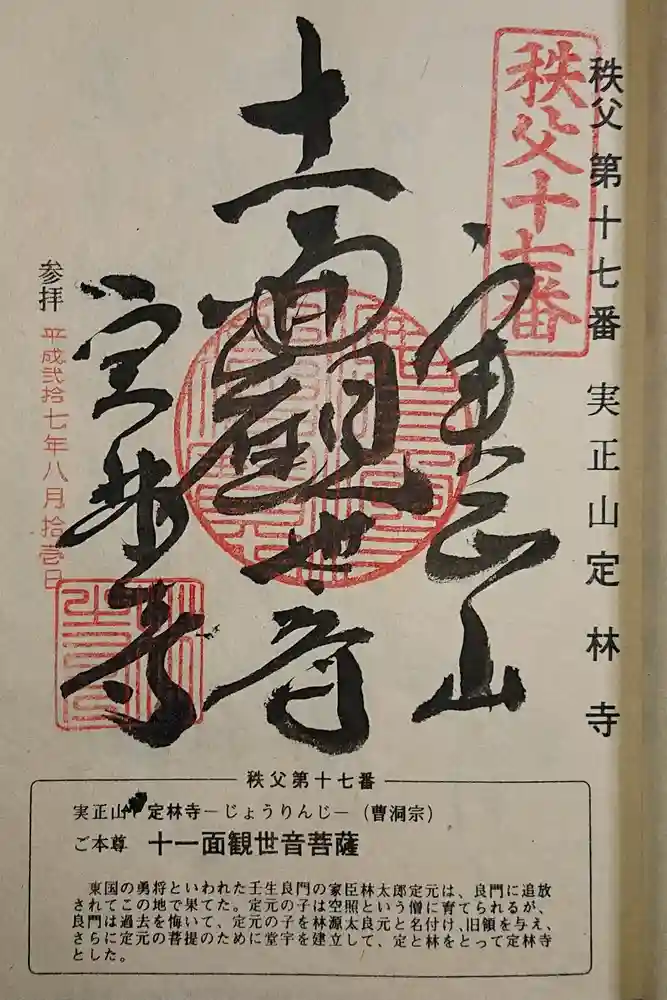 秩父第十七番 実正山定林寺
秩父十七番
実正山
十一面観世音
定林寺
参拝 平成弐拾七年八月拾壱日
秩父第十七番
実正山 定林寺－じょうりんじ－（曹洞宗）
ご本尊 十一面観世音菩薩
東国の勇将といわれた壬生良門の家臣林太郎定元は、良門に追放
されてこの地で果てた。定元の子は空照という僧に育てられるが、
良門は過去を悔いて、定元の子を林源太良元と名付け、旧領を与え、
さらに定元の菩提のために堂宇を建立して、定と林をとって定林寺
とした。